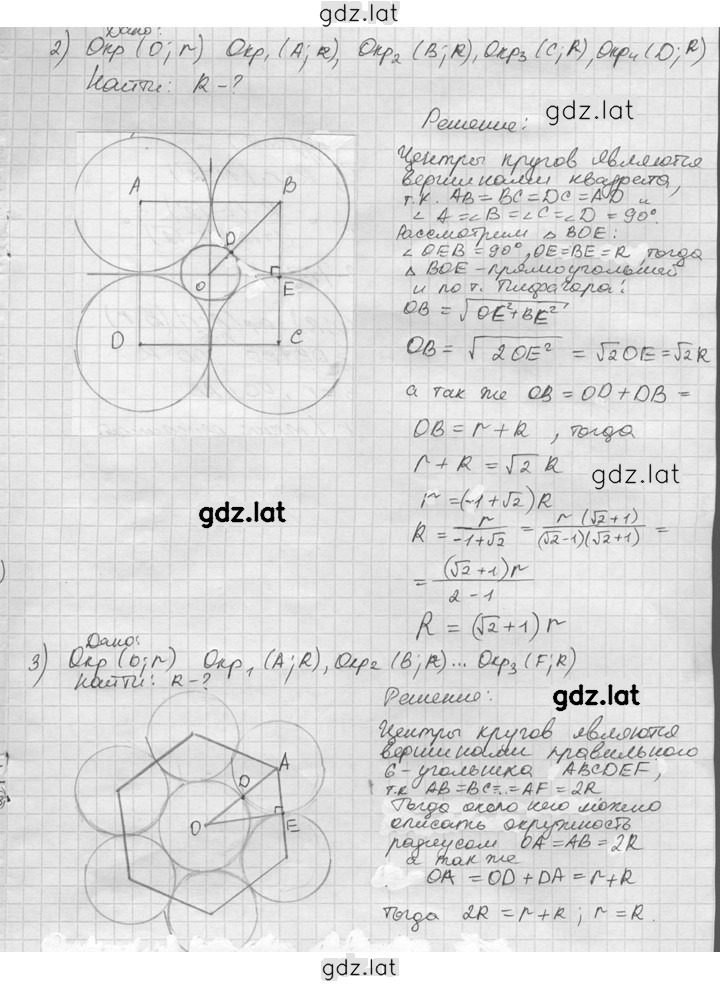 gdz.lat
Дано:
2) Окр (O; r) Окр₁ (A; R), Окр₂ (B; R), Окр₃ (C; R), Окр₄ (D; R)
Найти: R - ?
gdz.lat
Решение:
Центры кругов являются
вершинами квадрата,
т.к. AB = BC = DC = AD и
∠A = ∠B = ∠C = ∠D = 90°.
Рассмотрим △ BOE:
∠OEB = 90°, OE = BE = R, тогда
△ BOE - прямоугольный
и по т. Пифагора:
OB = √(OE² + BE²)
OB = √(2OE²) = √2 OE = √2 R
а так же OB = OD + DB =
OB = r + R , тогда
r + R = √2 R
gdz.lat
r = (-1 + √2) R
R = r/(-1+√2) = r(√2+1)/((√2-1)(√2+1)) =
= (√2+1)r/(2-1)
R = (√2+1) r
A
B
D
O
E
D
C
gdz.lat
Дано:
3) Окр (O; r) Окр₁ (A; R), Окр₂ (B; R)... Окр₃ (F; R)
Найти: R - ?
gdz.lat
Решение:
Центры кругов являются
вершинами правильного
6-угольника ABCDEF,
т.к AB = BC = .. = AF = 2R
Тогда около него можно
описать окружность
радиусом OA = AB = 2R
а так же
OA = OD + DA = r + R
Тогда 2R = r + R ; r = R.
A
D
O
E
gdz.lat